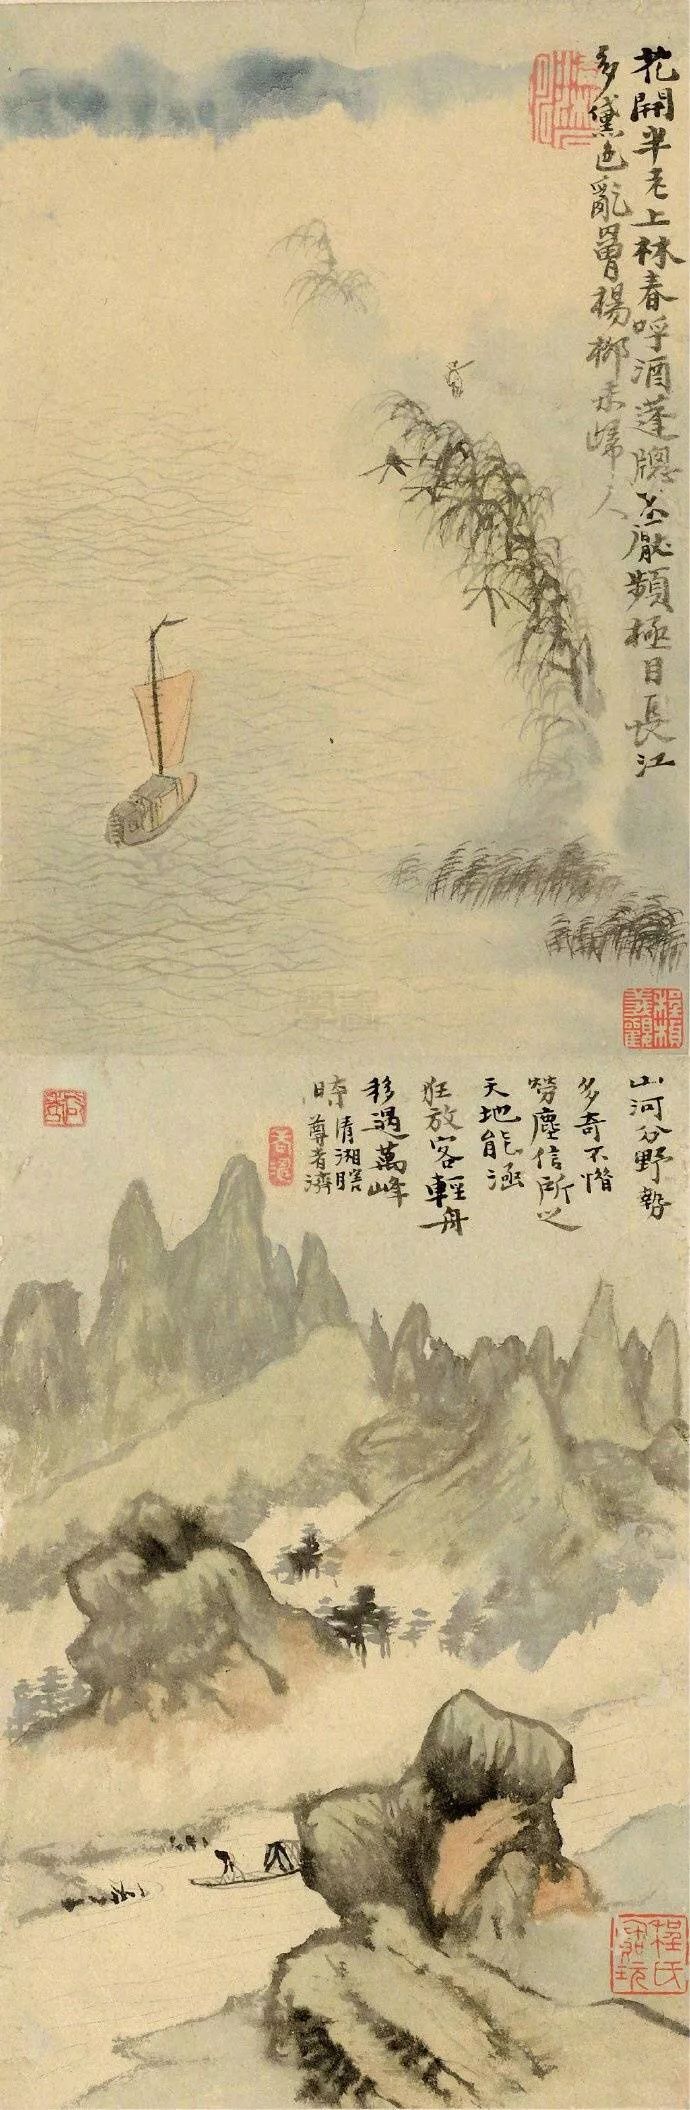 花開半老上林春呼酒蓬牕不厭頻極目長江
多黛色亂罥楊柳未歸人
程楨
義觀
山河分野勢
多奇不惜
勞塵信所之
天地能涵
狂放客輕舟
移過萬峰
時清湘瞎
尊者濟
程氏